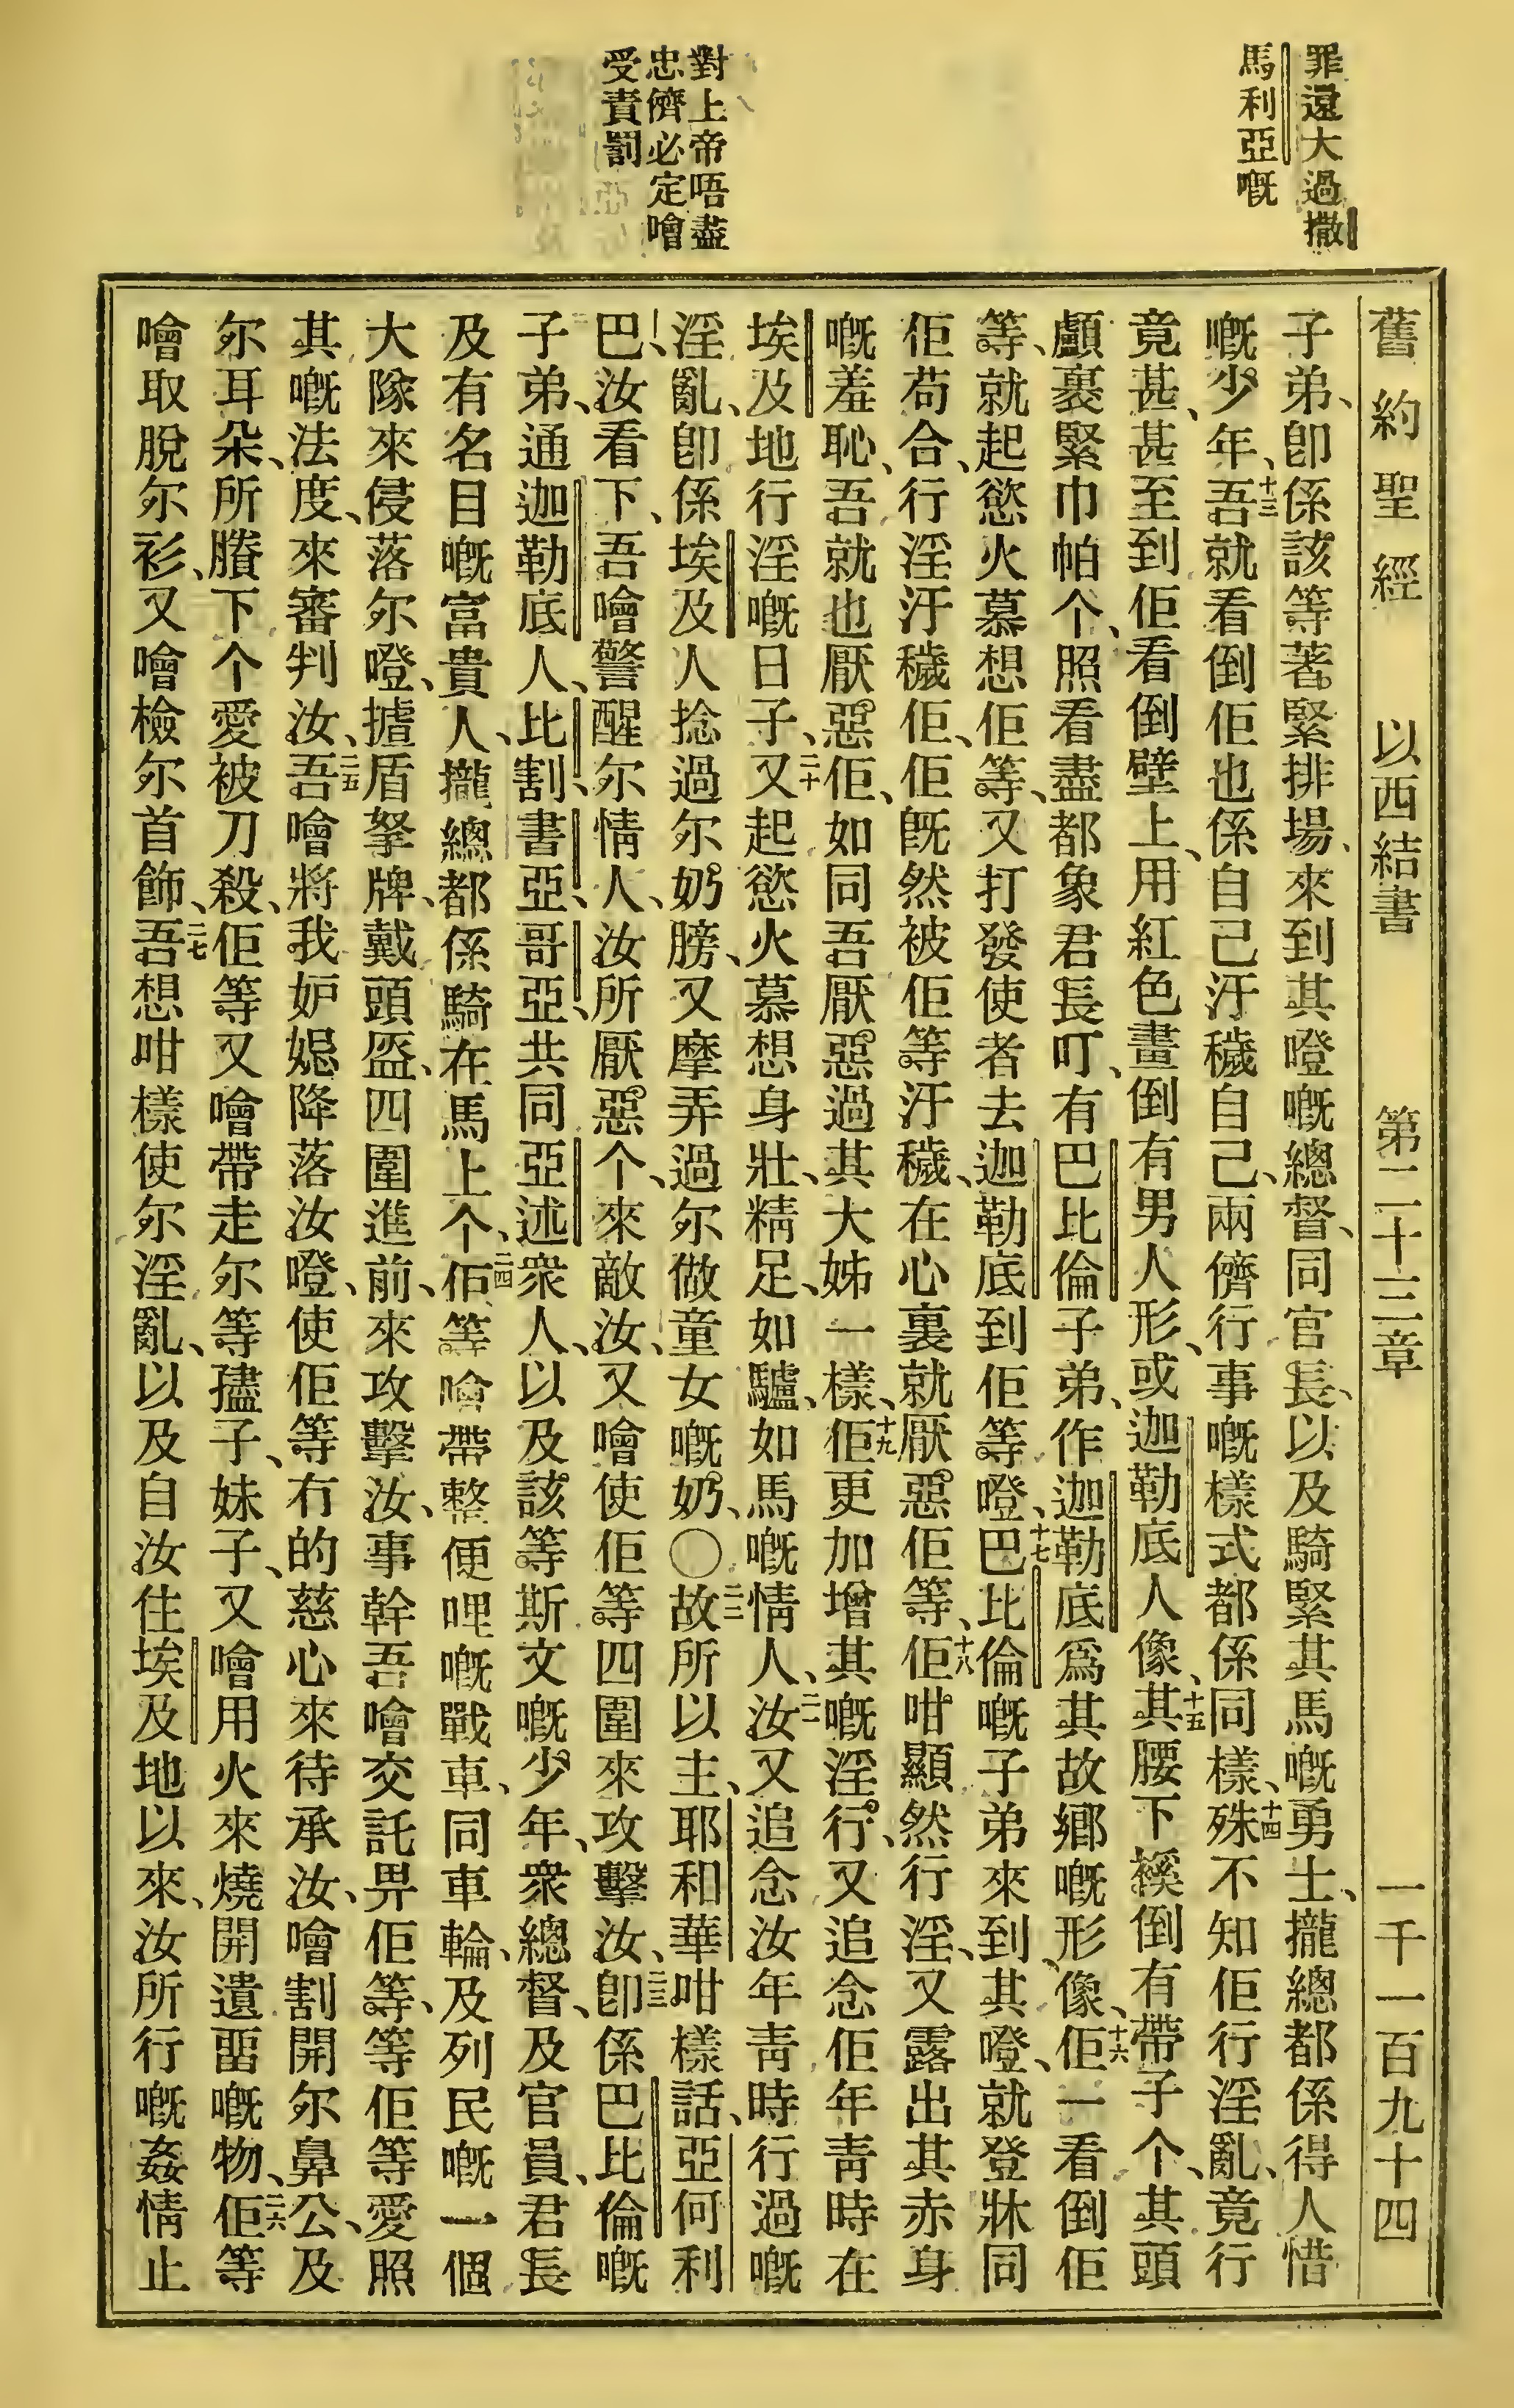 罪還大過撒
馬利亞嘅
對上帝唔盡
忠儕必定噲
受責罰
舊約聖經 以西結書 第二十三章 一千一百九十四
子弟、卽係該等著緊排場、來到其嶝嘅總督、同官長、以及騎緊其馬嘅勇士、攏總都係得人惜
嘅少年、十三吾就看倒佢也係自己汙穢自己、兩儕行事嘅樣式都係同樣、十四殊不知佢行淫亂、竟行
竟甚、甚至到佢看倒壁上、用紅色畫倒有男人形、或迦勒底人像、十五其腰下㩗倒有帶子个、其頭
顱裏緊巾帕个、照看盡都象君長叮、有巴比倫子弟、作迦勒底爲其故鄉嘅形像、十六佢一看倒佢
等、就起慾火慕想佢等、又打發使者去迦勒底到佢等嶝、十七巴比倫嘅子弟來到其嶝、就登牀同
佢苟合、行淫汙穢佢、佢旣然被佢等汙穢、在心裏就厭惡佢等、十八佢咁顯然行淫、又露出其赤身
嘅羞恥、吾就也厭惡佢、如同吾厭惡過其大姊一樣、十九佢更加增其嘅淫行、又追念佢年靑時在
埃及地行淫嘅日子、二十又起慾火慕想身壯、精足、如驢、如馬嘅情人、二一汝又追念汝年靑時行過嘅
淫亂、卽係埃及人捻過尔奶膀、又摩弄過尔做童女嘅奶、〇二二故所以主、耶和華咁樣話、亞何利
巴、汝看下、吾噲警醒尔情人、汝所厭惡个、來敵汝、又噲使佢等四圍來攻擊汝、二三卽係巴比倫嘅
子弟、通迦勒底人、比割、書亞、哥亞、共同亞述衆人、以及該等斯文嘅少年、衆總督、及官員、君長
及有名目嘅富貴人、攏總都係騎在馬上个、二四佢等噲帶整便哩嘅戰車、同車輪、及列民嘅一個
大隊來侵落尔嶝、摣盾拏牌、戴頭盔、四圍進前、來攻擊汝、事幹吾噲交託畀佢等、等佢等愛照
其嘅法度、來審判汝、二五吾噲將我妒𡞳降落汝嶝、使佢等冇的慈心來待承汝、噲割開尔鼻公、及
尔耳朶、所賸下个愛被刀殺、佢等又噲帶走尔等𡥧子、妹子、又噲用火來燒開遺畱嘅物、二六佢等
噲取脫尔衫、又噲檢尔首飾、二七吾想咁樣使尔淫亂、以及自汝住埃及地以來、汝所行嘅姦情止